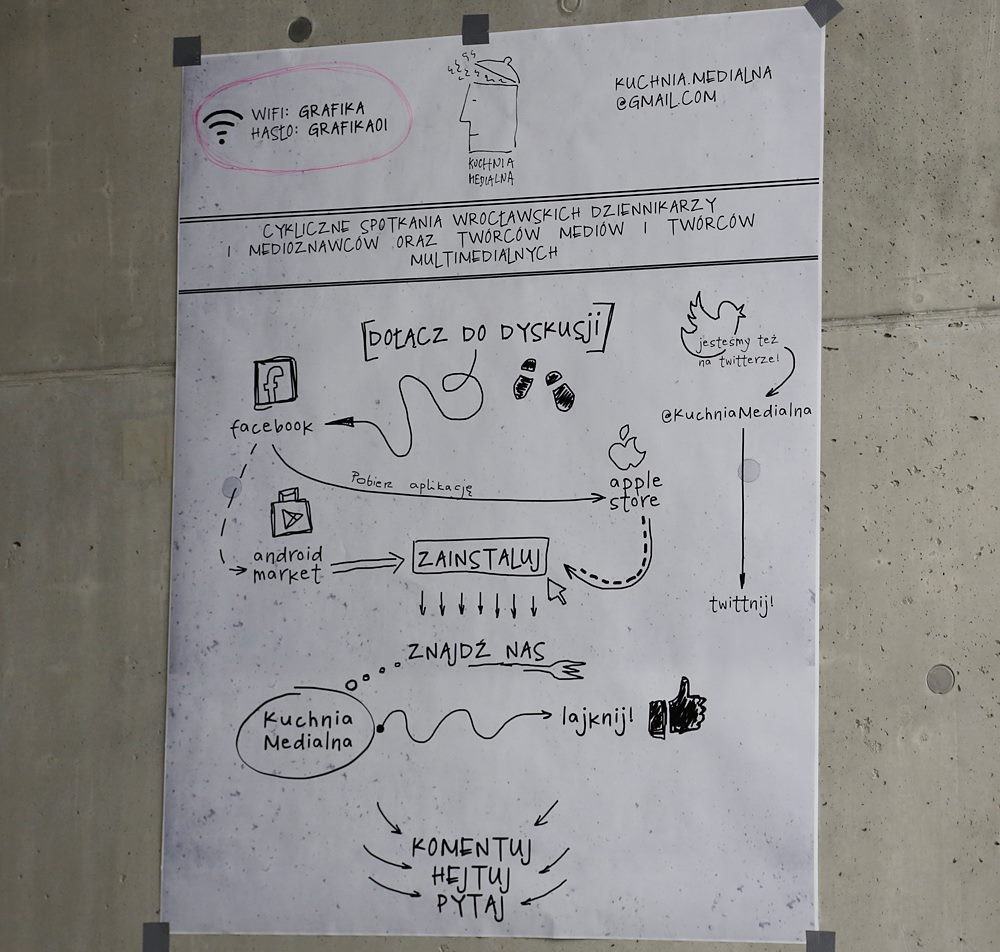 WIFI: GRAFIKA
HASŁO: GRAFIKA01
KUCHNIA
MEDIALNA
KUCHNIA.MEDIALNA
@GMAIL.COM
CYKLICZNE SPOTKANIA WROCŁAWSKICH DZIENNIKARZY
I MEDIOZNAWCÓW ORAZ TWÓRCÓW MEDIÓW I TWÓRCÓW
MULTIMEDIALNYCH
[DOŁĄCZ DO DYSKUSJI]
jesteśmy też
na twitterze!
@KuchniaMedialna
twittnij!
f
facebook
Pobierz aplikację
apple
store
android
market
ZAINSTALUJ
ZNAJDŹ NAS
Kuchnia
Medialna
lajknij!
KOMENTUJ
HEJTUJ
PYTAJ